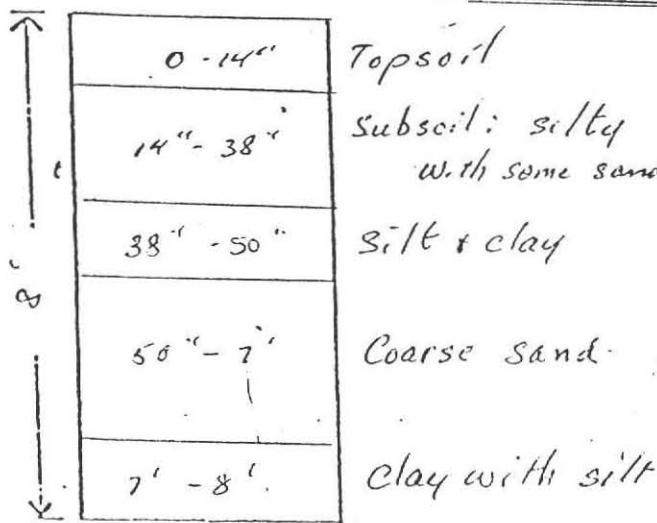 0 - 14" Topsoil
14" - 38" Subsoil: silty
with some sand
38" - 50" Silt + clay
8'
50" - 7' Coarse sand
7' - 8'. Clay with silt